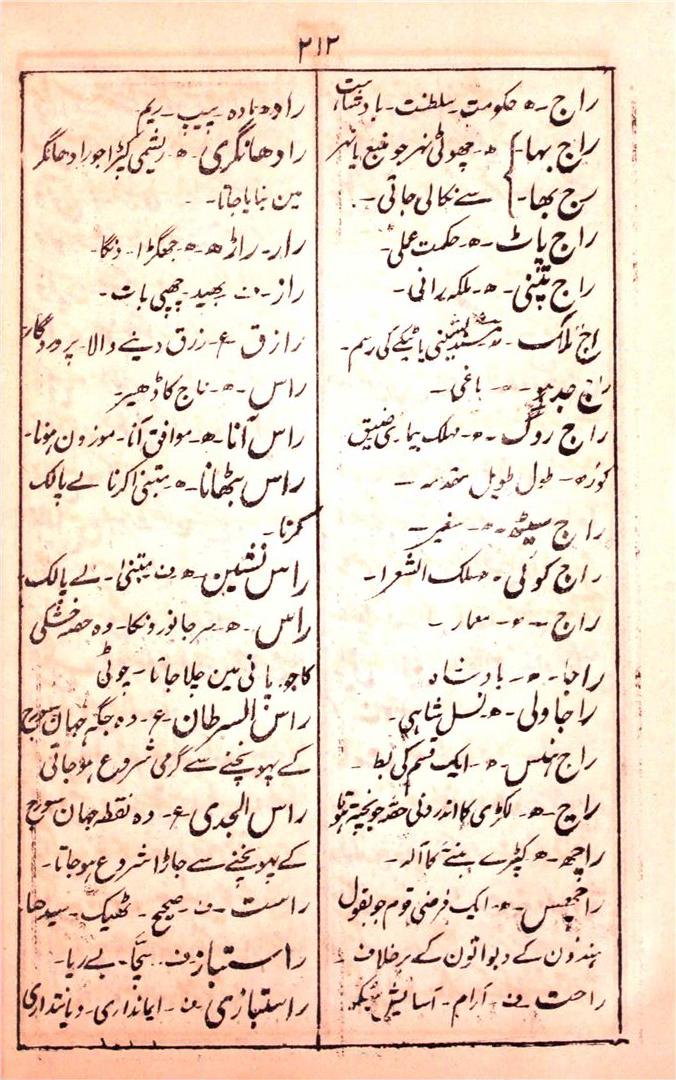 ۲۱۲
راج ۔ ھ حکومت ۔ سلطنت ۔ بادشاہت
راج بہا ۔ } ھ ۔ چھوٹی نہر جو منبع یا نہر
رج بھا ۔ } سے نکالی جاتی ۔
راج پاٹ ۔ ھ ۔ حکمت عملی
راج پتنی ۔ ھ ۔ ملکہ رانی ۔
راج تلک ۔ مسند نشینی یا ٹیکے کی رسم ۔
راج ۔ ھ ۔ باغی ۔
راج روگ ۔ ھ ۔ مہلک بیماری ضیق
کوڑھ ۔ طول طویل مقدمہ ۔
راج سیٹھ ۔ ھ ۔ سفیر ۔
راج کوئی ۔ ھ ملک الشعرا ۔
راج ۔ ھ ۔ معمار ۔
راجا ۔ ھ ۔ بادشاہ
راجاولی ۔ ھ ۔ نسل شاہی ۔
راج ہنس ۔ ھ ۔ ایک قسم کی بط ۔
راچ ۔ ھ ۔ لکڑی کا اندرونی حصہ جو پختہ ہوتا
راچھ ۔ ھ کپڑے بننے کا آلہ ۔
راچھس ۔ ھ ۔ ایک فرضی قوم جو بقول
ہندون کے دیواتون کے برخلاف ۔
راحت ۔ ف ۔ آرام ۔ آسایش
رادھ ۔ مادہ ۔ پیپ ۔ ریم
رادھانگری ۔ ھ ۔ ریشمی کپڑا جو رادھانگر
مین بنایا جاتا ۔
رار ۔ راڑھ ۔ ھ جھگڑا ۔ دنگا ۔
راز ۔ ف ۔ بھید ۔ چھپی بات ۔
رازق ۔ ع ۔ رزق دینے والا ۔ پروردگار
راس ۔ ھ ۔ ناج کا ڈھیر
راس آنا ۔ ھ ۔ موافق آنا ۔ موزون ہونا ۔
راس بٹھانا ۔ ھ متبنیٰ کرنا لے پالک
کرنا ۔
راس نشین ۔ ھ ف متبنیٰ ۔ لے پالک ۔
راس ۔ ھ ۔ سر جانورونکا ۔ وہ حصہ خشکی
کا جو پانی مین چلا جاتا ۔ چوٹی
راس السرطان ۔ ع ۔ وہ جگہ جہان سورج
کے پہونچنے سے گرمی شروع ہوجاتی
راس الجدی ۔ ع ۔ وہ نقطہ جہان سورج
کے پہونچنے سے جاڑا شروع ہوجاتا ۔
راست ۔ ف ۔ صحیح ۔ ٹھیک ۔ سیدھا
راستباز ۔ ف ۔ سچّا ۔ بے ریا ۔
راستبازی ۔ ف ۔ ایمانداری ۔ دیانتداری